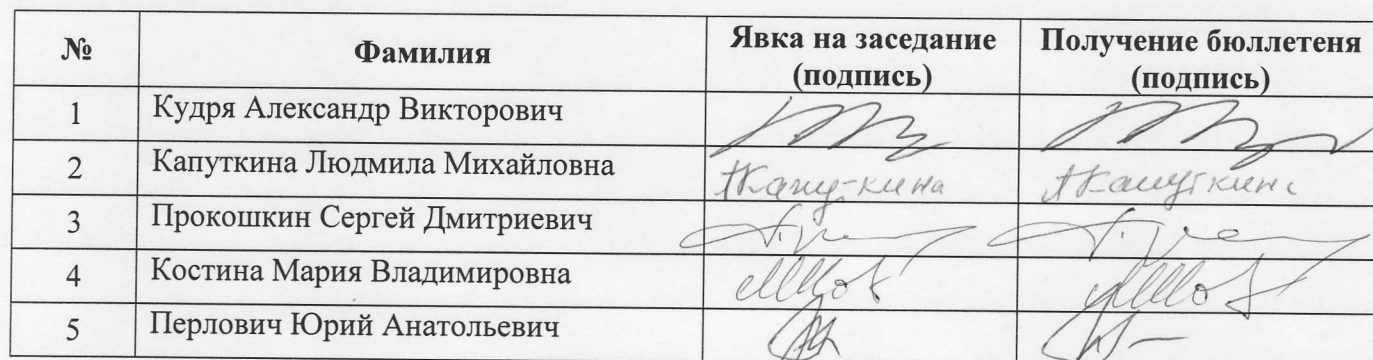 № Фамилия Явка на заседание (подпись) Получение бюллетеня (подпись)
1 Кудря Александр Викторович
2 Капуткина Людмила Михайловна Капуткина Капуткина
3 Прокошкин Сергей Дмитриевич
4 Костина Мария Владимировна
5 Перлович Юрий Анатольевич